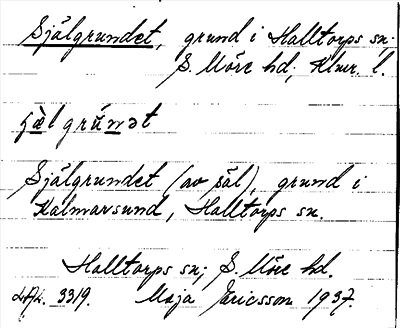 Själgrundet, grund i Halltorps sn;
S. Möre hd; Klmr. l.
själgrúndt
Själgrundet (av säl), grund i
Kalmarsund, Halltorps sn.
Halltorps sn; S. Möre hd.
3319. Maja Ericsson 1937.